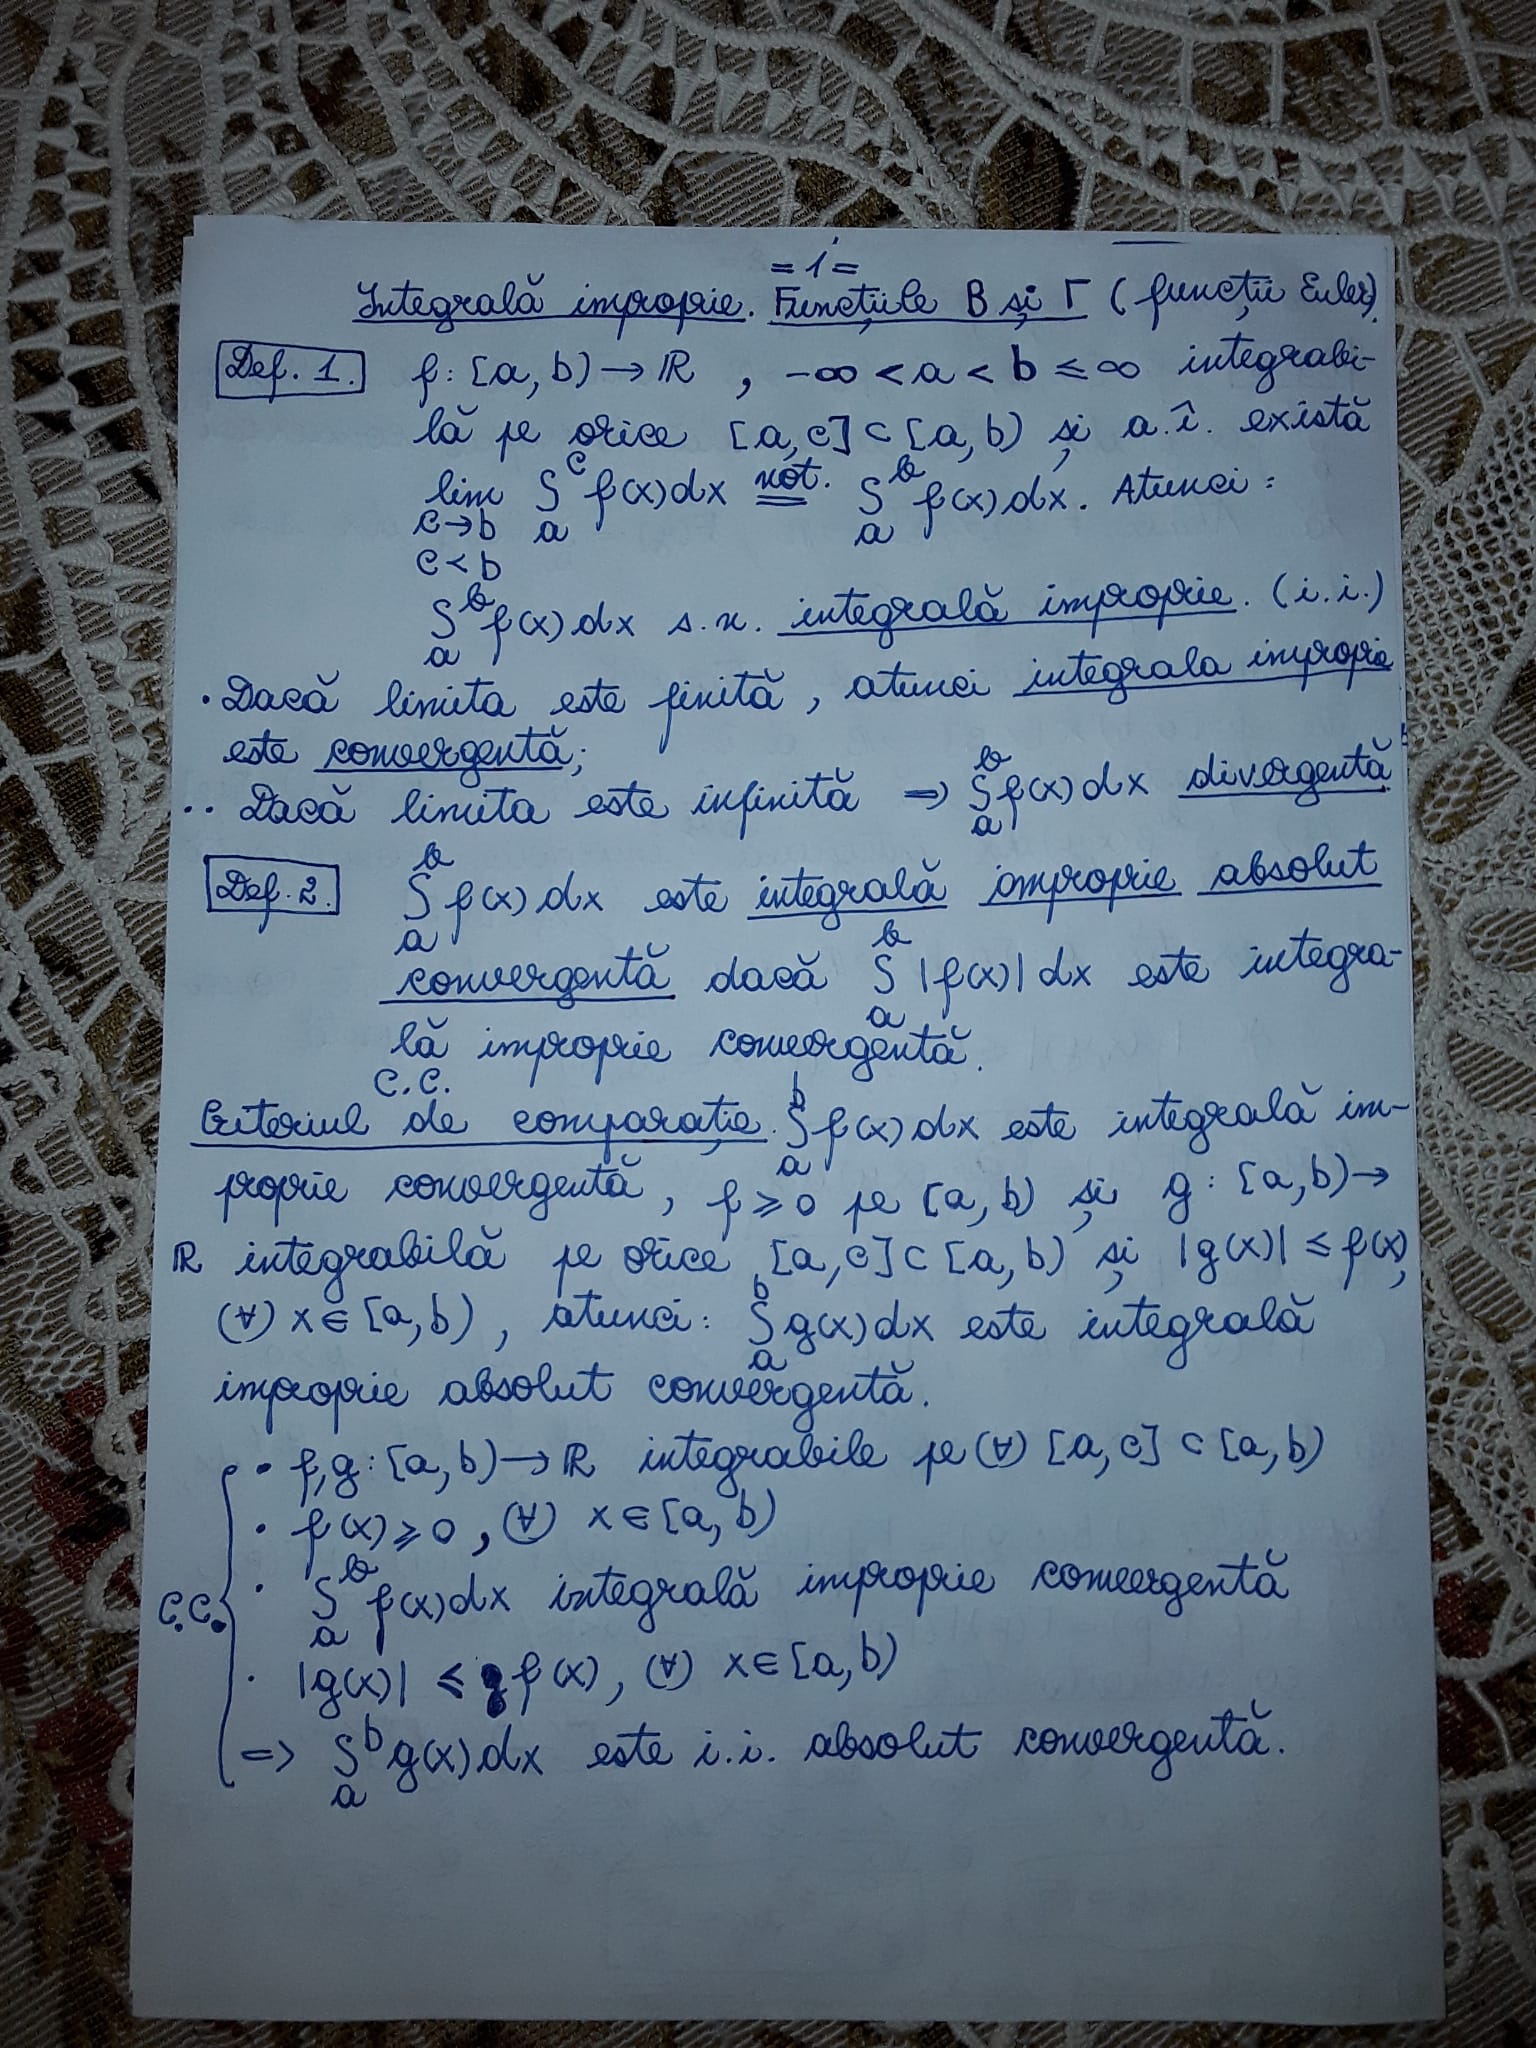 = 1 =
Integrală improprie. Funcțiile B și Γ (funcții Euler).
Def. 1. f: [a, b) → ℝ , -∞ < a < b ≤ ∞ integrabi-
lă pe orice [a, c] ⊂ [a, b) și a.î. există
lim_{c→b, c<b} ∫_a^c f(x)dx not.= ∫_a^b f(x)dx. Atunci:
∫_a^b f(x)dx s.n. integrală improprie. (i.i.)
• Dacă limita este finită, atunci integrala improprie
este convergentă;
•• Dacă limita este infinită ⇒ ∫_a^b f(x)dx divergentă
Def. 2. ∫_a^b f(x)dx este integrală improprie absolut
convergentă dacă ∫_a^b |f(x)|dx este integra-
lă improprie convergentă.
C.C.
Criteriul de comparație. ∫_a^b f(x)dx este integrală im-
proprie convergentă, f ≥ 0 pe [a, b) și g: [a, b) →
ℝ integrabilă pe orice [a, c] ⊂ [a, b) și |g(x)| ≤ f(x),
(∀) x ∈ [a, b), atunci: ∫_a^b g(x)dx este integrală
improprie absolut convergentă.
• f, g: [a, b) → ℝ integrabile pe (∀) [a, c] ⊂ [a, b)
• f(x) ≥ 0, (∀) x ∈ [a, b)
C.C. • ∫_a^b f(x)dx integrală improprie convergentă
• |g(x)| ≤ f(x), (∀) x ∈ [a, b)
⇒ ∫_a^b g(x)dx este i.i. absolut convergentă.